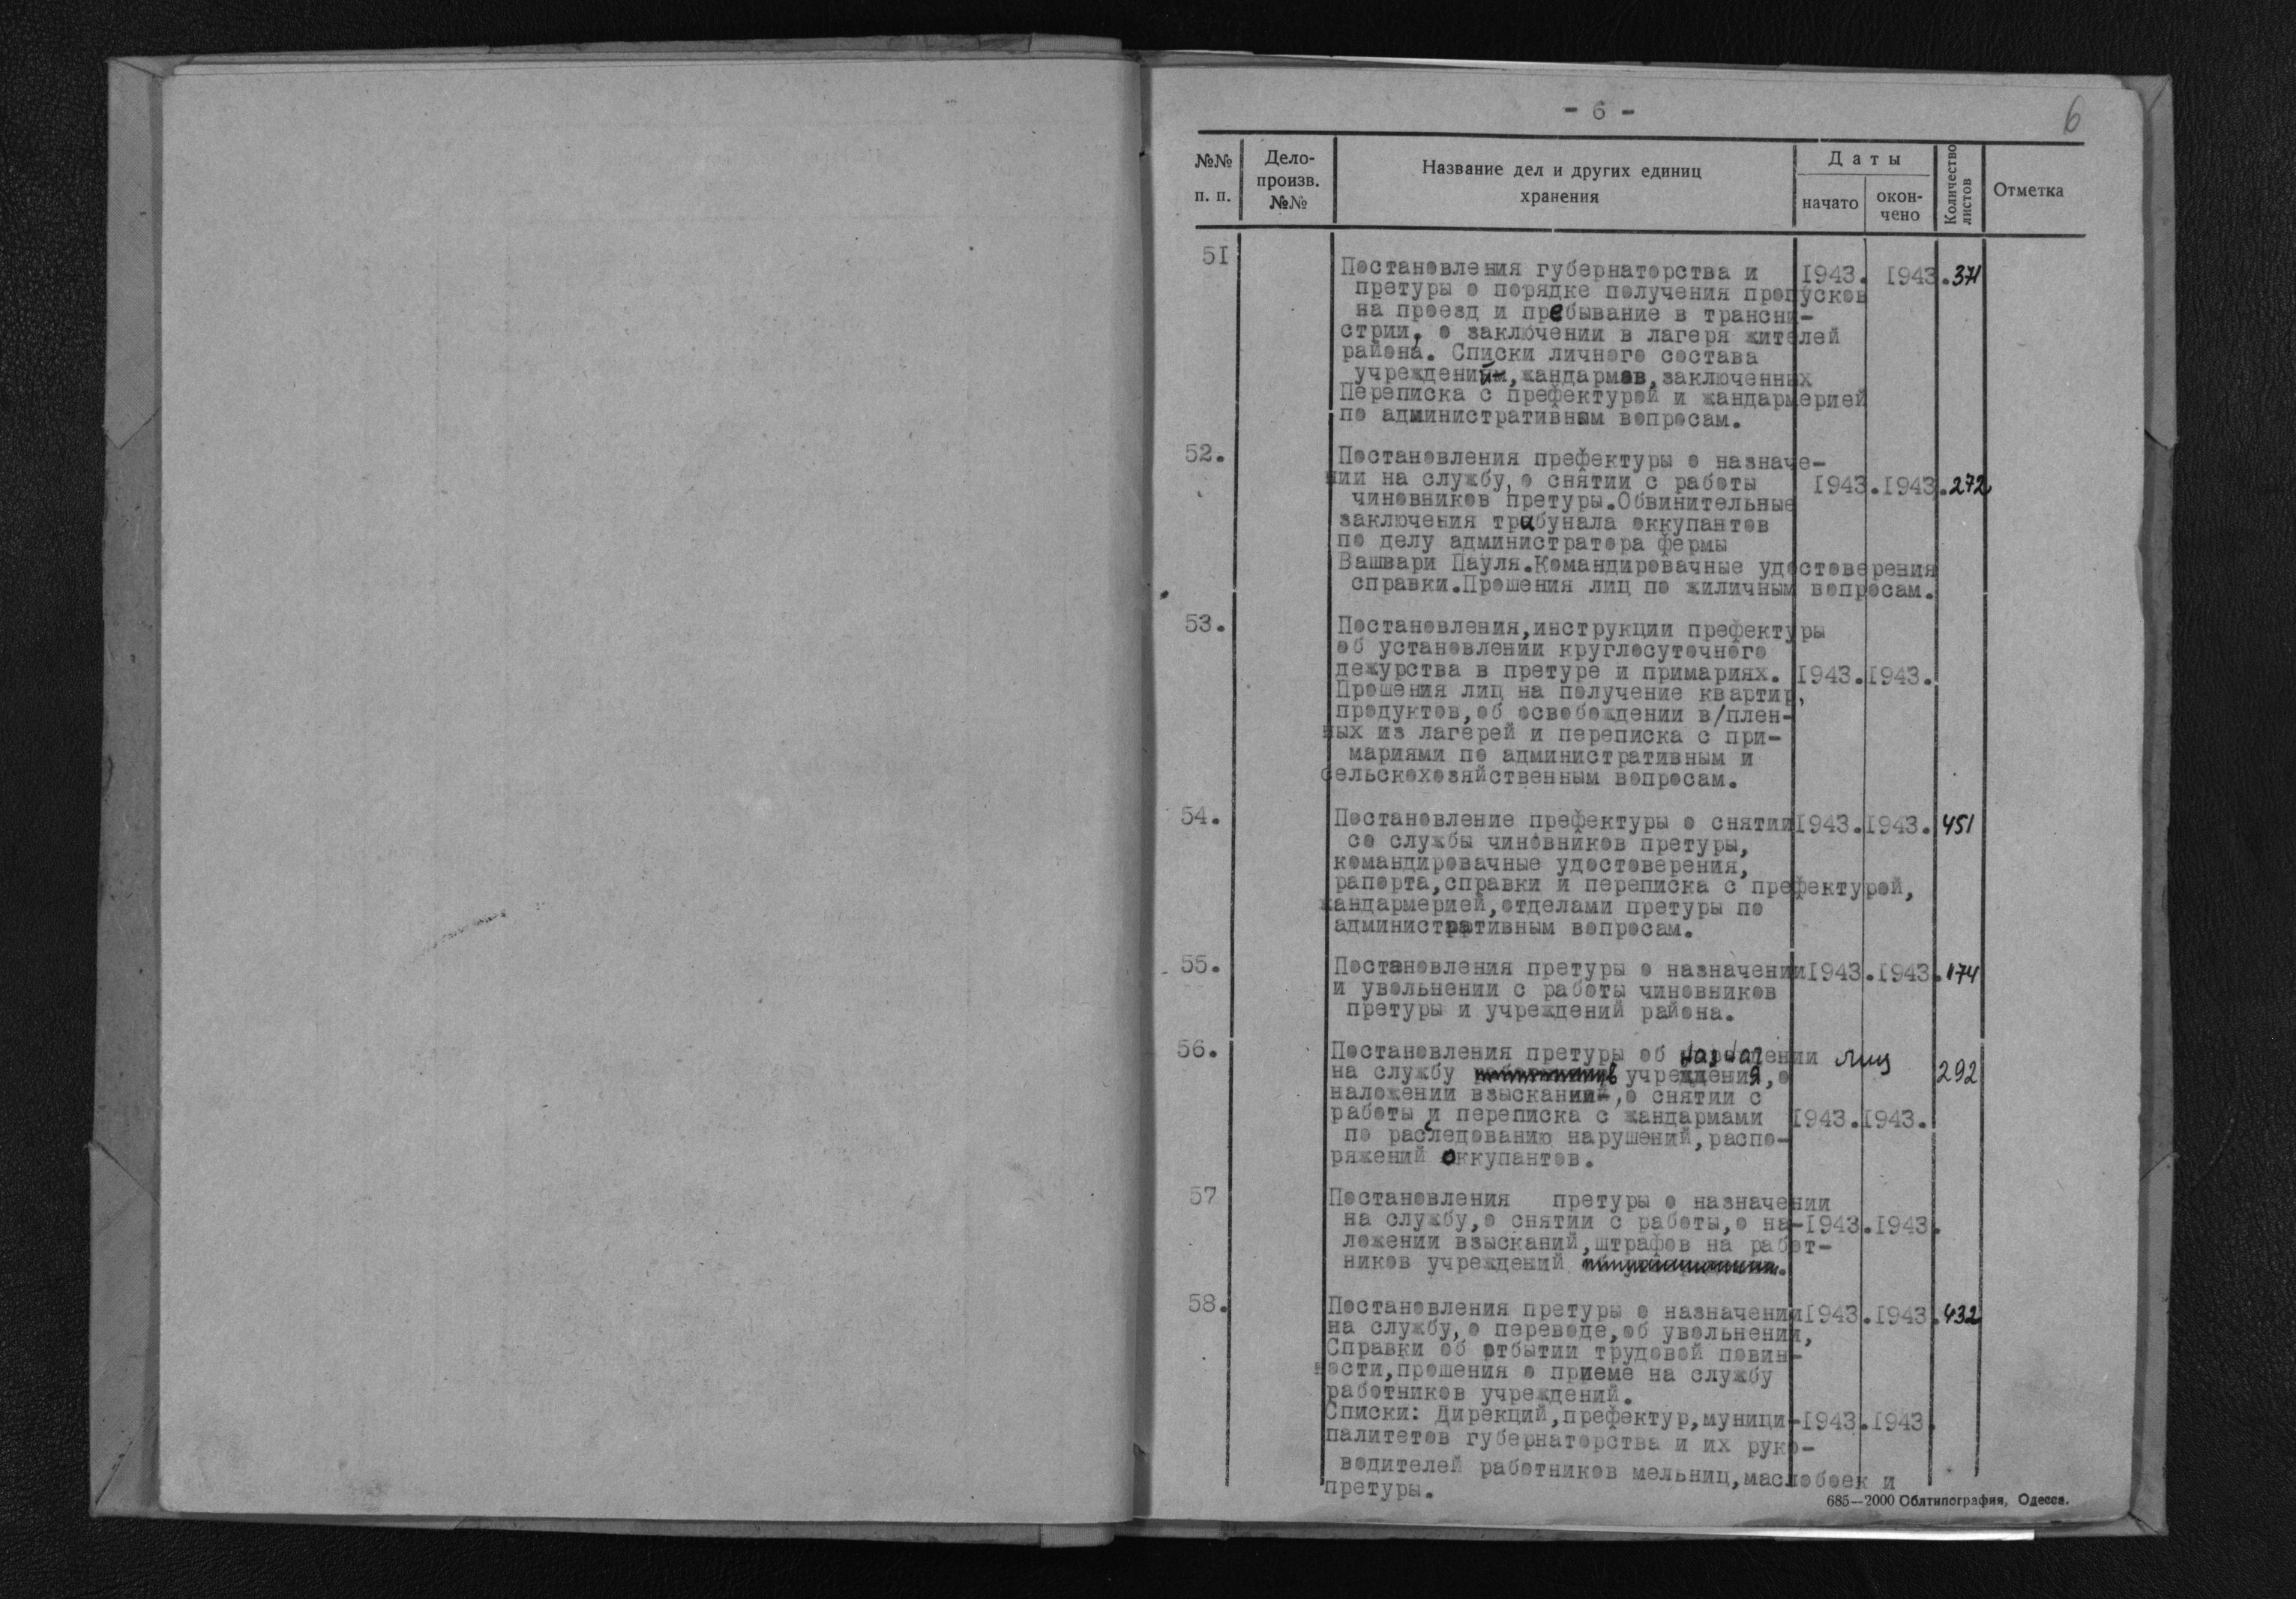 - 6 -
6
№№ п. п.
Дело-произв. №№
Название дел и других единиц хранения
Даты
начато
окон-чено
Количество листов
Отметка
51
Постановления губернаторства и 1943. 1943. 371
претуры о порядке получения пропусков
на проезд и пребывание в трансни-
стрии, о заключении в лагеря жителей
района. Списки личного состава
учреждений, жандармов, заключенных
Переписка с префектурой и жандармерией
по административным вопросам.
52. Постановления префектуры о назначе-
нии на службу, о снятии с работы 1943. 1943. 272
чиновников претуры. Обвинительные
заключения трабунала оккупантов
по делу администратора фермы
Вашвари Пауля. Командировачные удостоверения
справки. Прошения лиц по жиличным вопросам.
53. Постановления, инструкции префектуры
об установлении круглосуточного
дежурства в претуре и примариях. 1943. 1943.
Прошения лиц на получение квартир,
продуктов, об освобождении в/плен-
ных из лагерей и переписка с при-
мариями по административным и
сельскохозяйственным вопросам.
54. Постановление префектуры о снятии 1943. 1943. 451
со службы чиновников претуры,
командировачные удостоверения,
рапорта, справки и переписка с префектурой,
жандармерией, отделами претуры по
административным вопросам.
55. Постановления претуры о назначении 1943. 1943. 174
и увольнении с работы чиновников
претуры и учреждений района.
56. Постановления претуры об назначении лиц
на службу в учреждения, о 292
наложении взысканий, о снятии с
работы и переписка с жандармами 1943. 1943.
по раследованию нарушений, распо-
ряжений оккупантов.
57 Постановления претуры о назначении
на службу, о снятии с работы, о на- 1943. 1943.
ложении взысканий, штрафов на работ-
ников учреждений
58. Постановления претуры о назначении 1943. 1943. 432
на службу, о переводе, об увольнении,
Справки об отбытии трудовой повин-
ности, прошения о приеме на службу
работников учреждений.
Списки: Дирекций, префектур, муници- 1943. 1943.
палитетов губернаторства и их руко-
водителей работников мельниц, маслобоек и
претуры.
685—2000 Облтипография, Одесса.